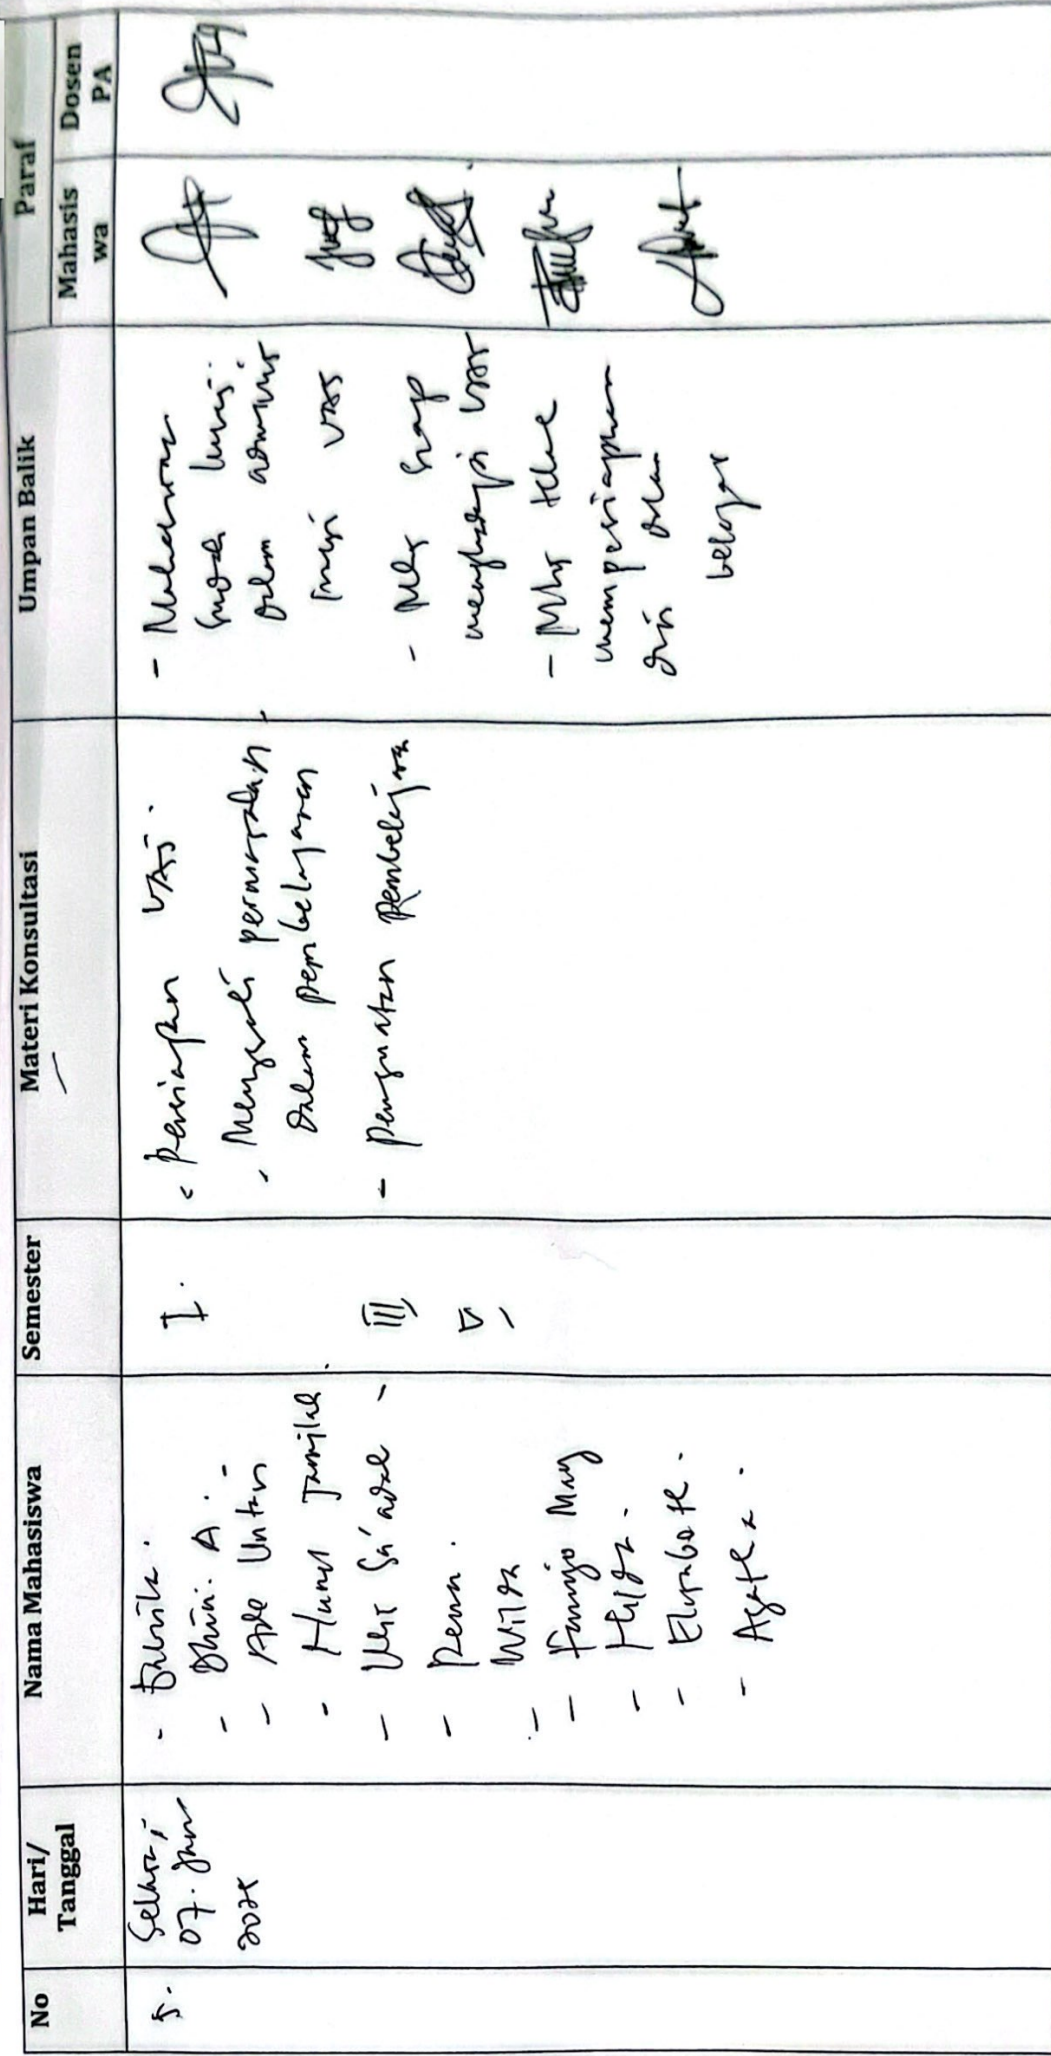 No
Hari/
Tanggal
Nama Mahasiswa
Semester
Materi Konsultasi
Umpan Balik
Paraf
Mahasis
wa
Dosen
PA
5.
Selasa,
07. Jan
2025
-
- Dhini. A.
- Ade Untari
- Husnul Jamilah
- Umi Sa'adah
- Renn.
- Wilda
- May
- Hilda.
- Elisabeth.
- Agatha.
I.
III,
V,
- Persiapan UAS.
- Mengenali permasalahan
dalam pembelajaran
- Penguatan pembelajaran
- Mahasiswa
sudah
dalam adminis
trasi UAS
- Mhs siap
menghadapi UAS
- Mhs telah
mempersiapkan
diri dalam
belajar